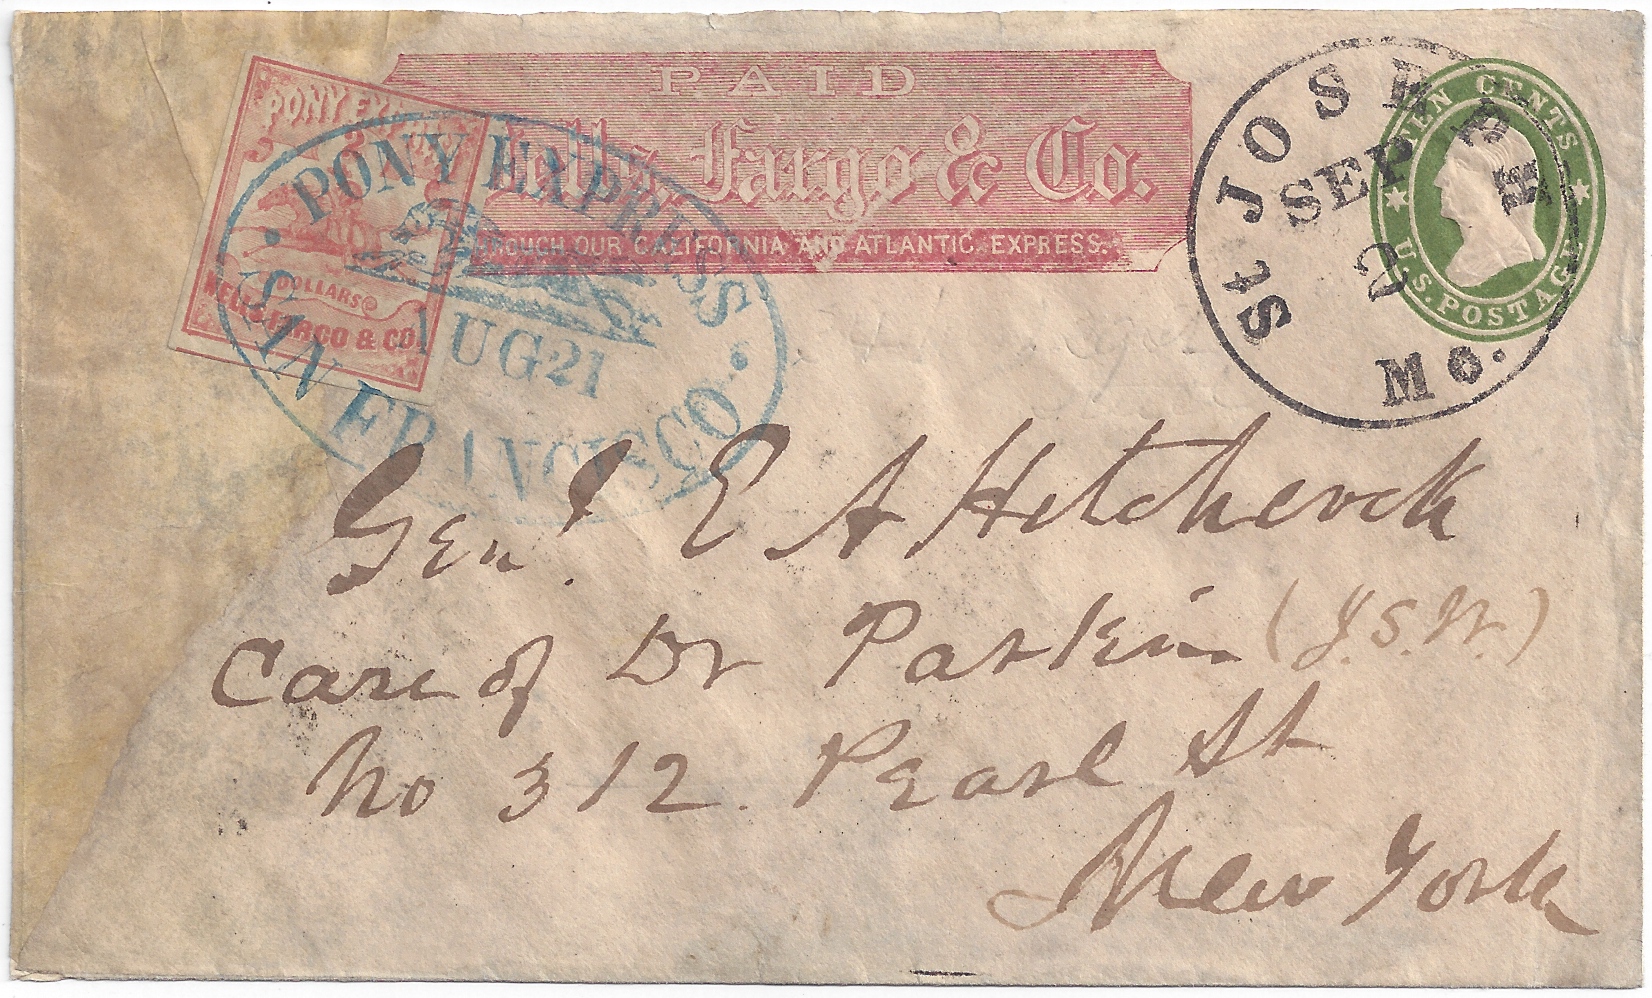 PAID
Wells, Fargo & Co.
THROUGH OUR CALIFORNIA AND ATLANTIC EXPRESS.
PONY EXPRESS
DOLLARS
WELLS FARGO & CO.
PONY EXPRESS
AUG 21
SAN FRANCISCO
St JOSEPH
SEP
2
Mo.
TEN CENTS
U.S. POSTAGE
Genl. E A Hitchcock
Care of Dr Parkin (J.S.W.)
No 312. Pearl St
New York